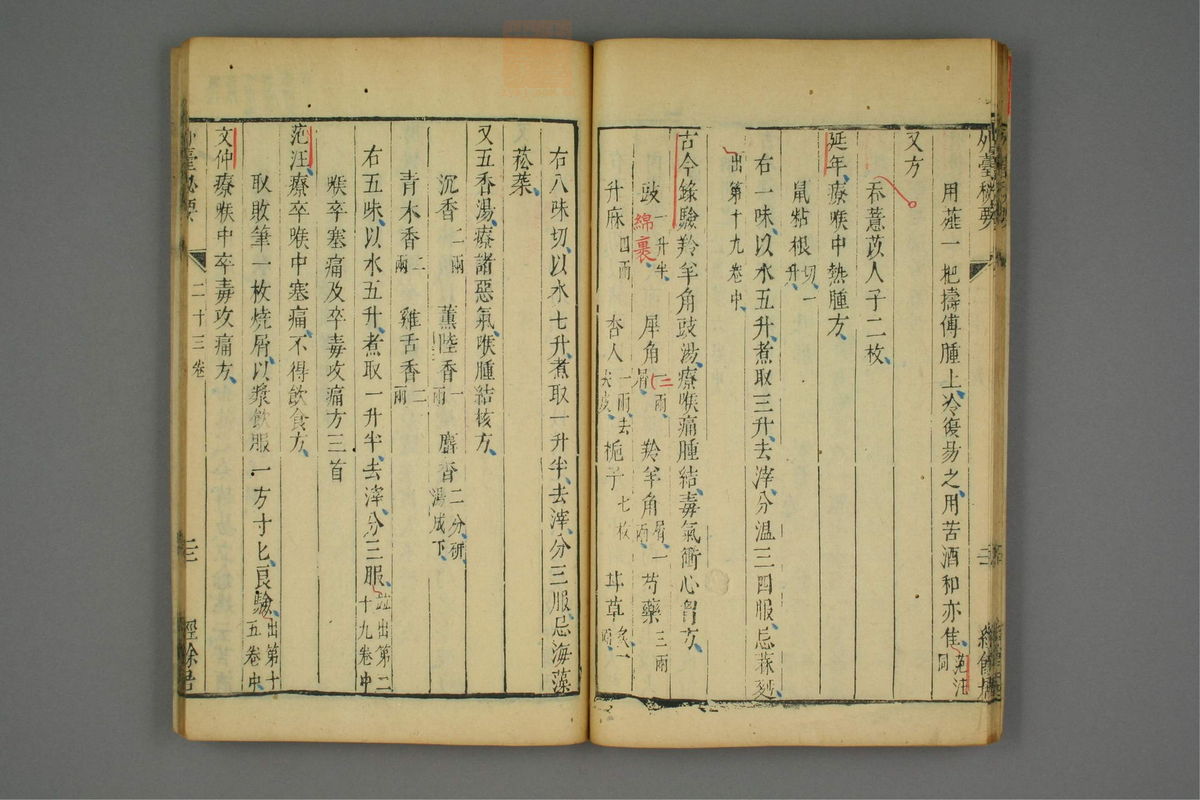 外臺秘要
用薤一把擣傅腫上冷復易之用苦酒和亦佳范汪同
又方
吞薏苡人子二枚
延年療喉中熱腫方
鼠粘根切一升
右一味以水五升煮取三升去滓分溫三四服忌蒜麪
出第十九卷中
古今錄驗羚羊角豉湯療喉痛腫結毒氣衝心胷方
豉一升半綿裹 犀角一兩屑 羚羊角一兩屑 芍藥三兩
升麻四兩 杏人一兩去尖皮 梔子七枚 甘草一兩炙
右八味切以水七升煮取一升半去滓分三服忌海藻
菘菜
又五香湯療諸惡氣喉腫結核方
沉香二兩 薰陸香一兩 麝香二分研湯成下
青木香二兩 雞舌香二兩
右五味以水五升煮取一升半去滓分三服並出第二十九卷中
喉卒塞痛及卒毒攻痛方三首
范汪療卒喉中塞痛不得飲食方
取敗筆一枚燒屑以漿飲服一方寸匕良驗出第十五卷中
文仲療喉中卒毒攻痛方
外臺秘要 二十三卷 三 經餘居